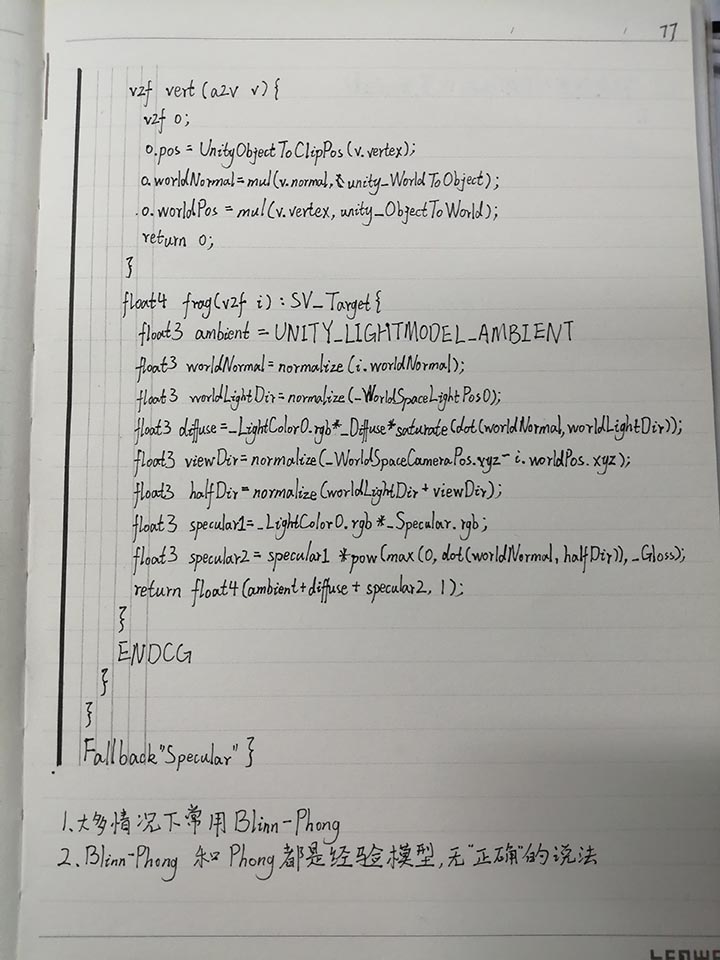 77
v2f vert(a2v v){
v2f o;
o.pos = UnityObjectToClipPos(v.vertex);
o.worldNormal=mul(v.normal, unity_WorldToObject);
o.worldPos = mul(v.vertex, unity_ObjectToWorld);
return o;
}
float4 frag(v2f i) : SV_Target{
float3 ambient = UNITY_LIGHTMODEL_AMBIENT
float3 worldNormal=normalize(i.worldNormal);
float3 worldLightDir=normalize(_WorldSpaceLightPos0);
float3 diffuse=_LightColor0.rgb*_Diffuse*saturate(dot(worldNormal,worldLightDir));
float3 viewDir=normalize(_WorldSpaceCameraPos.xyz-i.worldPos.xyz);
float3 halfDir=normalize(worldLightDir+viewDir);
float3 specular1=_LightColor0.rgb*_Specular.rgb;
float3 specular2=specular1 *pow(max(0,dot(worldNormal,halfDir)),_Gloss);
return float4(ambient+diffuse+specular2,1);
}
ENDCG
}
}
Fallback"Specular"}
1.大多情况下常用Blinn-Phong
2.Blinn-Phong 和Phong都是经验模型,无"正确"的说法